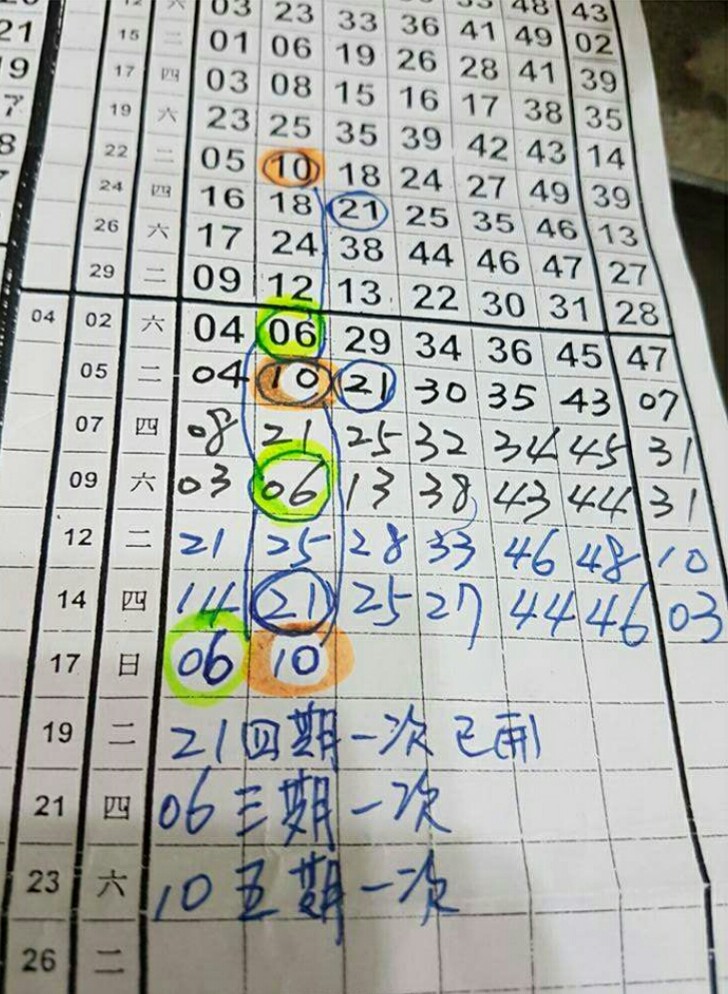 12 六 03 23 33 36 48 43
15 二 01 06 19 26 28 41 39
17 四 03 08 15 16 17 38 35
19 六 23 25 35 39 42 43 14
22 二 05 10 18 24 27 49 39
24 四 16 18 21 25 35 46 13
26 六 17 24 38 44 46 47 27
29 二 09 12 13 22 30 31 28
04 02 六 04 06 29 34 36 45 47
05 二 04 10 21 30 35 43 07
07 四 08 21 25 32 34 45 31
09 六 03 06 13 38 43 44 31
12 二 21 25 28 33 46 48 10
14 四 14 21 25 27 44 46 03
17 日 06 10
19 二 21四期一次已開
21 四 06三期一次
23 六 10五期一次
26 二